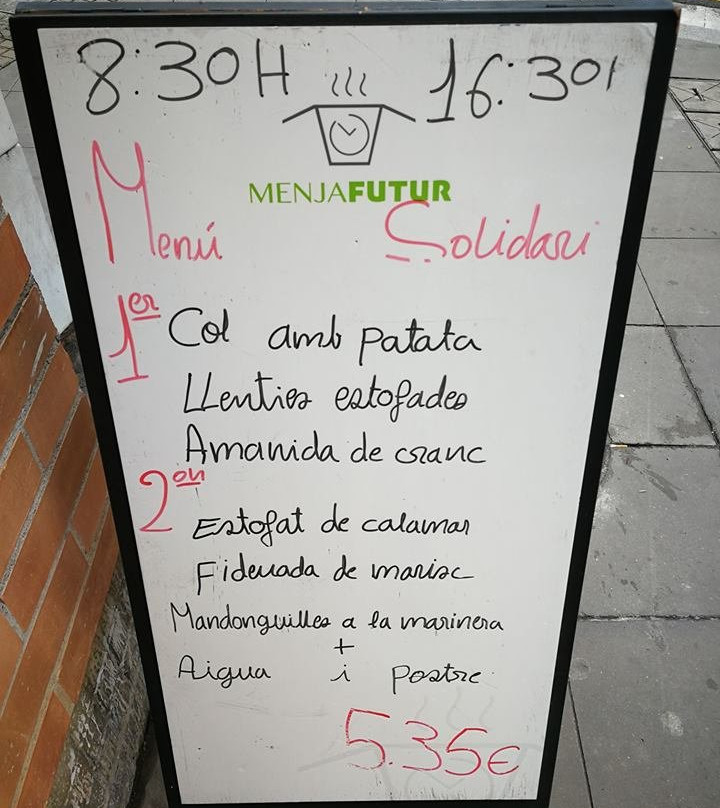 8:30H 16:30H
MENJAFUTUR
Menú Solidari
1er Col amb patata
Llenties estofades
Amanida de cranc
2on
Estofat de calamar
Fideuada de marisc
Mandonguilles a la marinera
+
Aigua i postre
5.35€